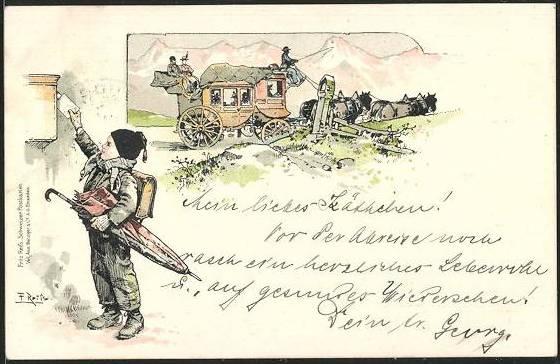 Mein liebes Käthchen!
Vor der Abreise noch
rasch ein herzliches Lebewohl
u., auf gesundes Wiedersehen!
Dein tr. Georg.
Fritz Reiß, Schweizer Postkarten
F. Reiß